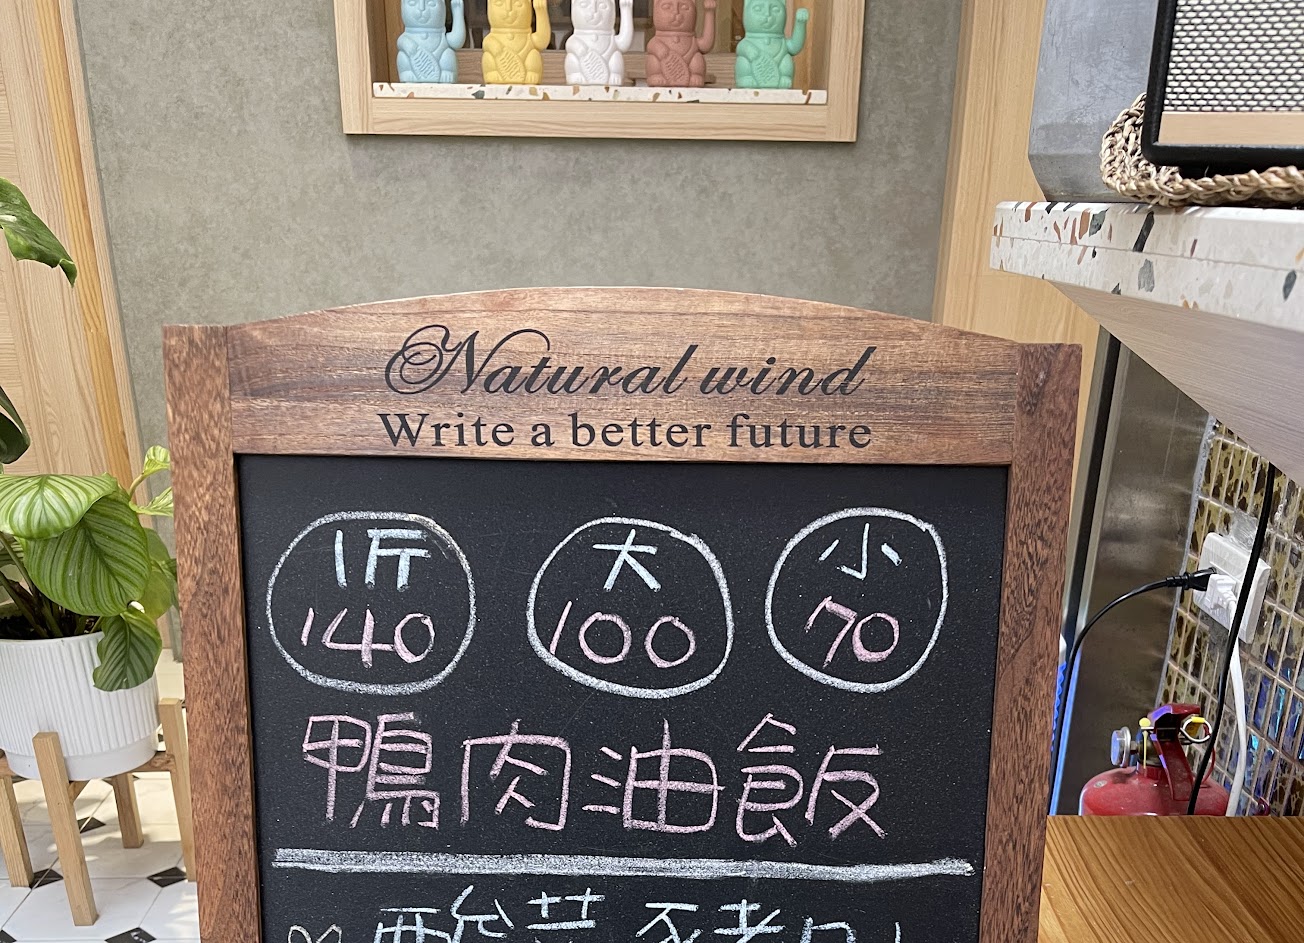 Natural wind
Write a better future
1斤 大 小
140 100 70
鴨肉油飯
酸菜